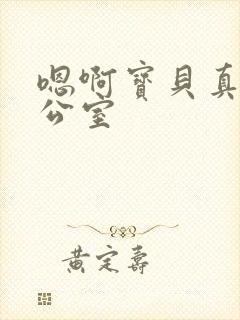 嗯啊寳貝真
公室
黄定壽